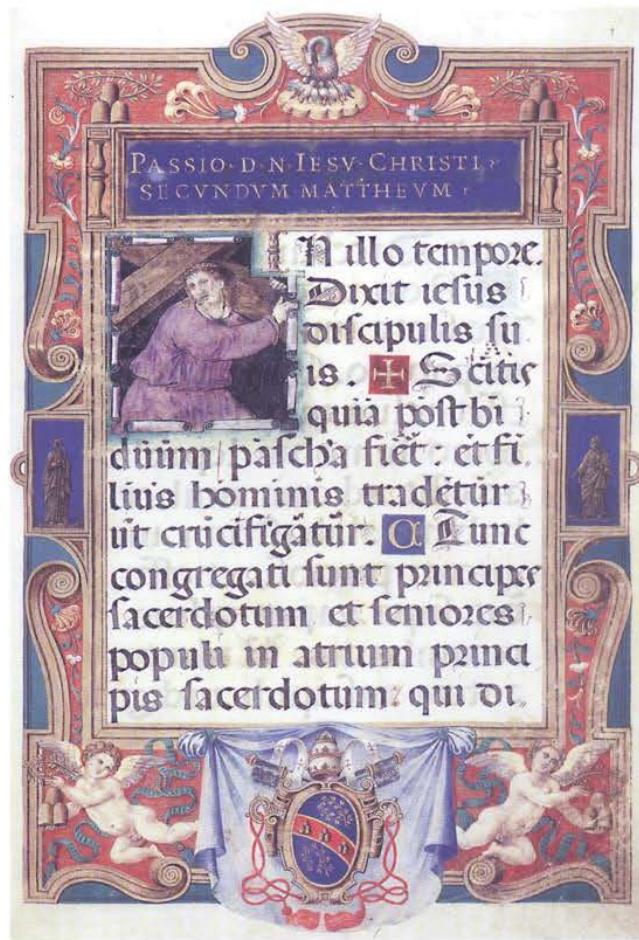 PASSIO·D·N·IESV·CHRISTI
SECVNDVM MATTHEVM
IN illo tempore.
Dixit iesus
discipulis su
is. Scitis
quia post bi
duum pascha fiet: et fi
lius hominis tradetur
ut crucifigatur. C Tunc
congregati sunt principes
sacerdotum et seniores
populi in atrium princi
pis sacerdotum: qui di